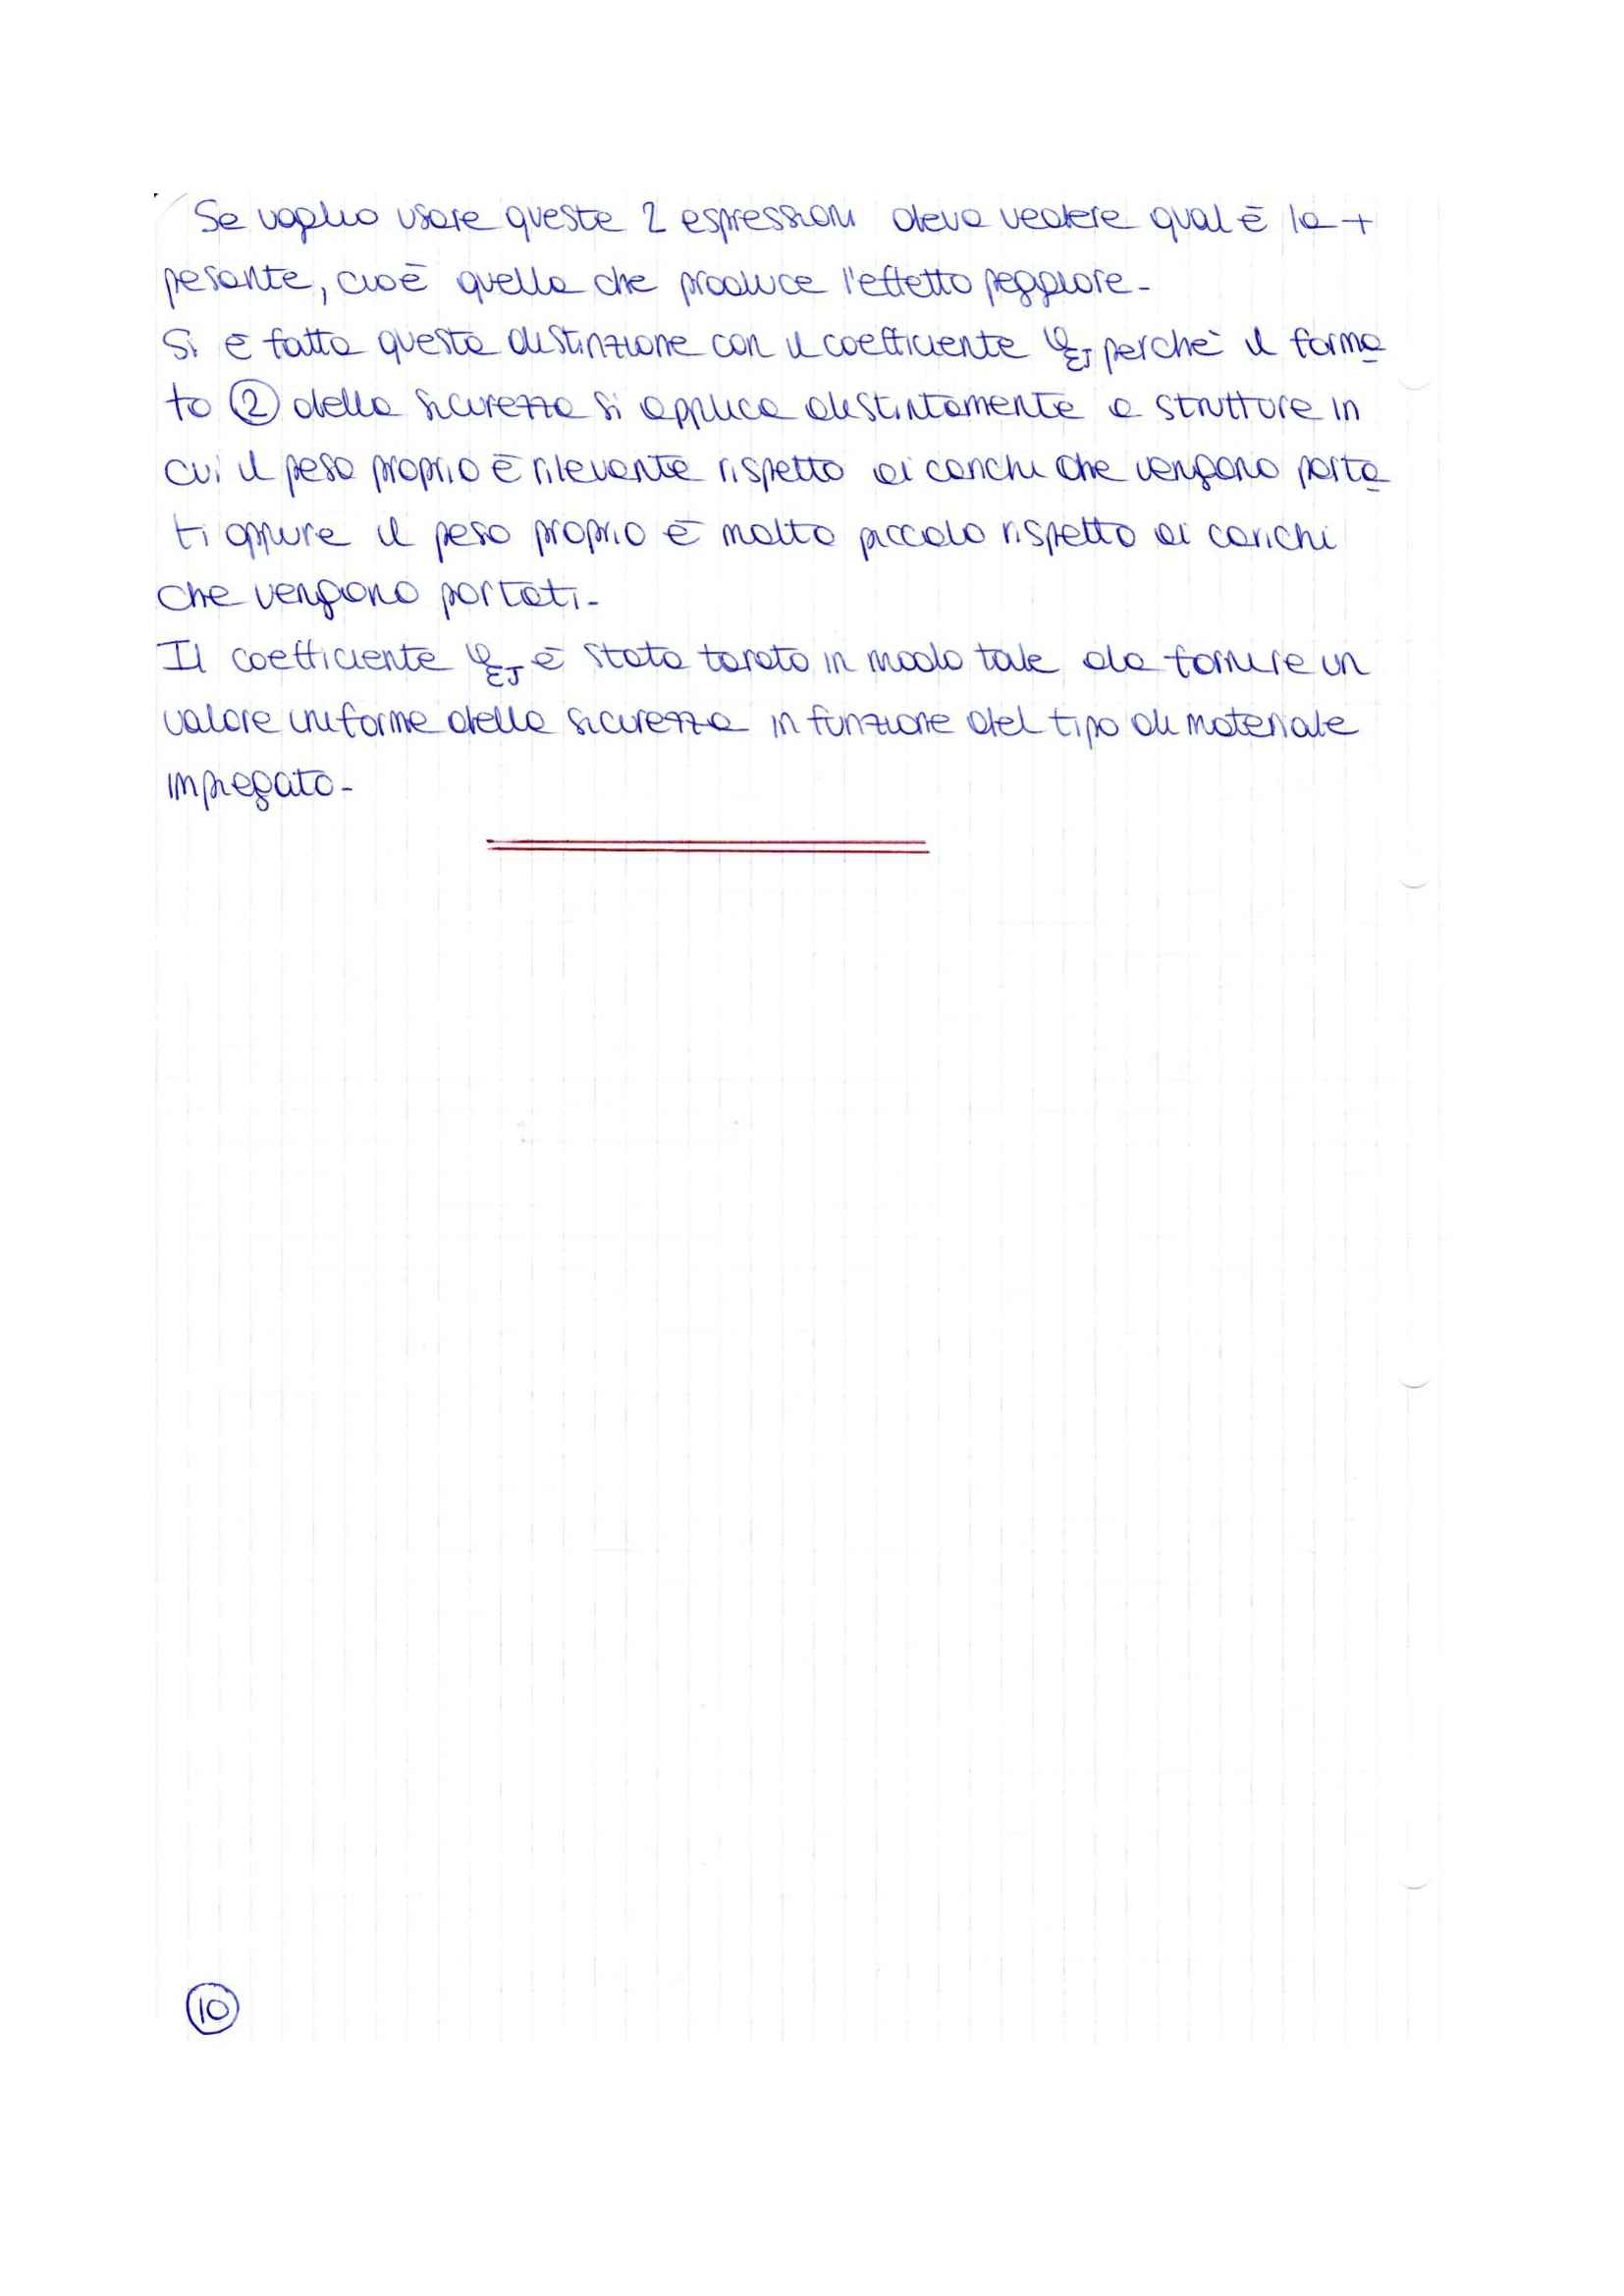 Se voglio usare queste 2 espressioni devo vedere qual è la +
pesante, cioè quella che produce l'effetto peggiore-
Si è fatta questa distinzione con il coefficiente φ_EJ perchè il forma
to ② della sicurezza si applica distintamente a strutture in
cui il peso proprio è rilevante rispetto ai carichi che vengono porta
ti oppure il peso proprio è molto piccolo rispetto ai carichi
che vengono portati-
Il coefficiente φ_EJ è stato tarato in modo tale da fornire un
valore uniforme della sicurezza in funzione del tipo di materiale
impiegato-
⑩